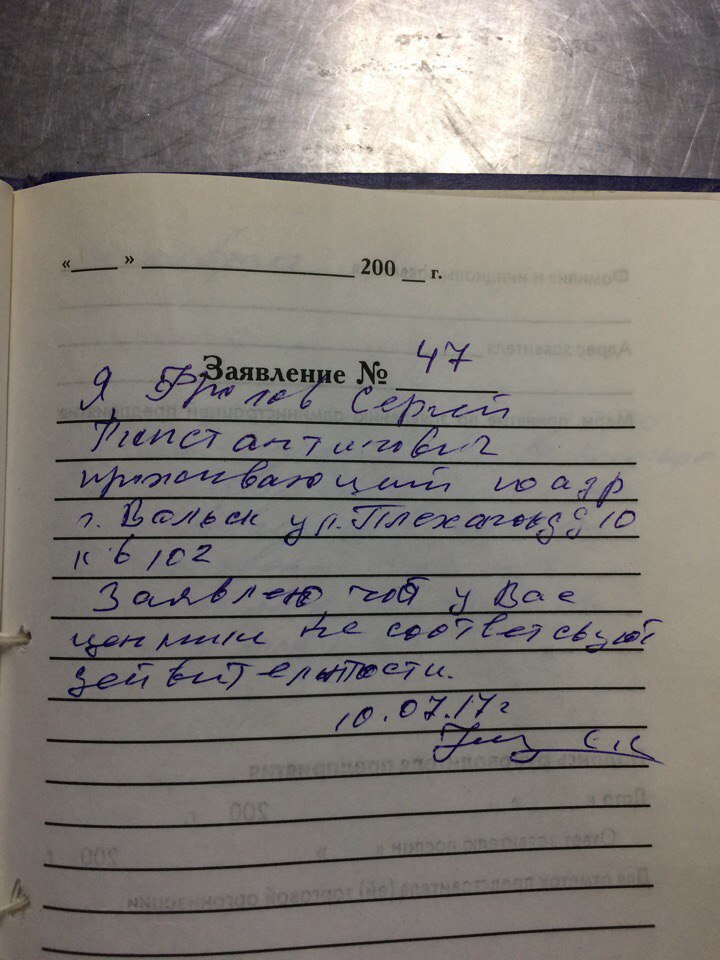 «____ » ______________ 200 __ г.
Заявление № 47
Я Фролов Сергей
Констан тинович
проживающий по адр
г. Вольск ул. Плеханова д 10
к в 102
Заявляю что у Вас
ценники не соответсвуют
действительности.
10.07.17г